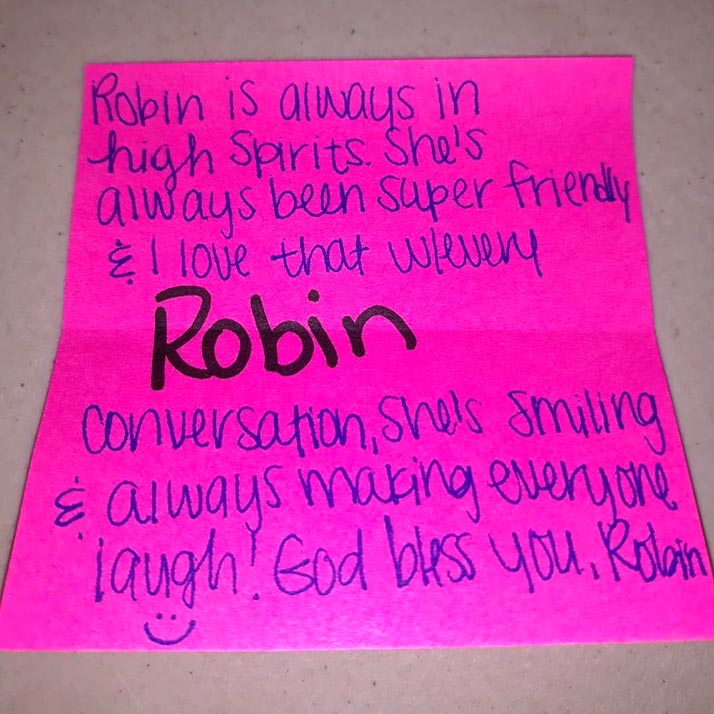 Robin is always in
high spirits. She's
always been super friendly
& I love that w/every
Robin
conversation, she's smiling
& always making everyone
laugh! God bless you, Robin